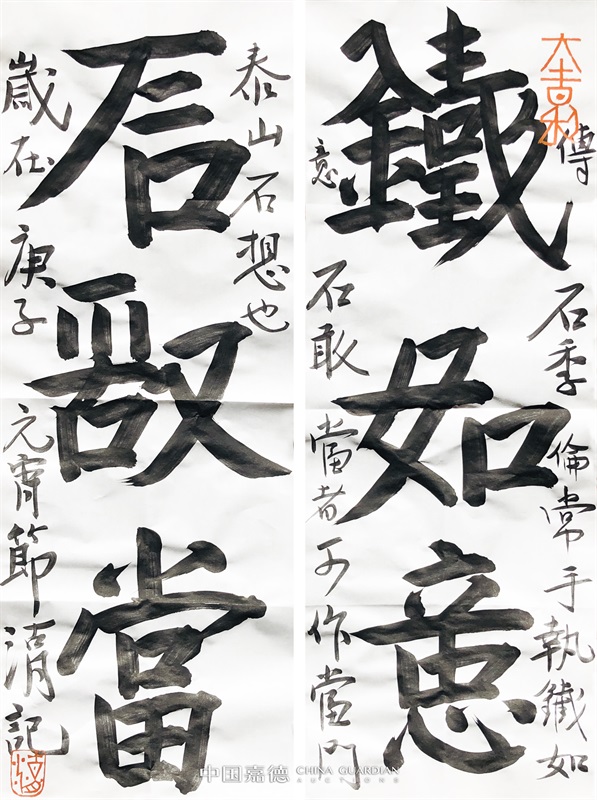 大吉利
傳石季倫常手執鐵如
鐵如意
意石敢當者可作當門
泰山石想也
石敢當
歲在庚子元宵節清記
中国嘉德 CHINA GUARDIAN
AUCTIONS